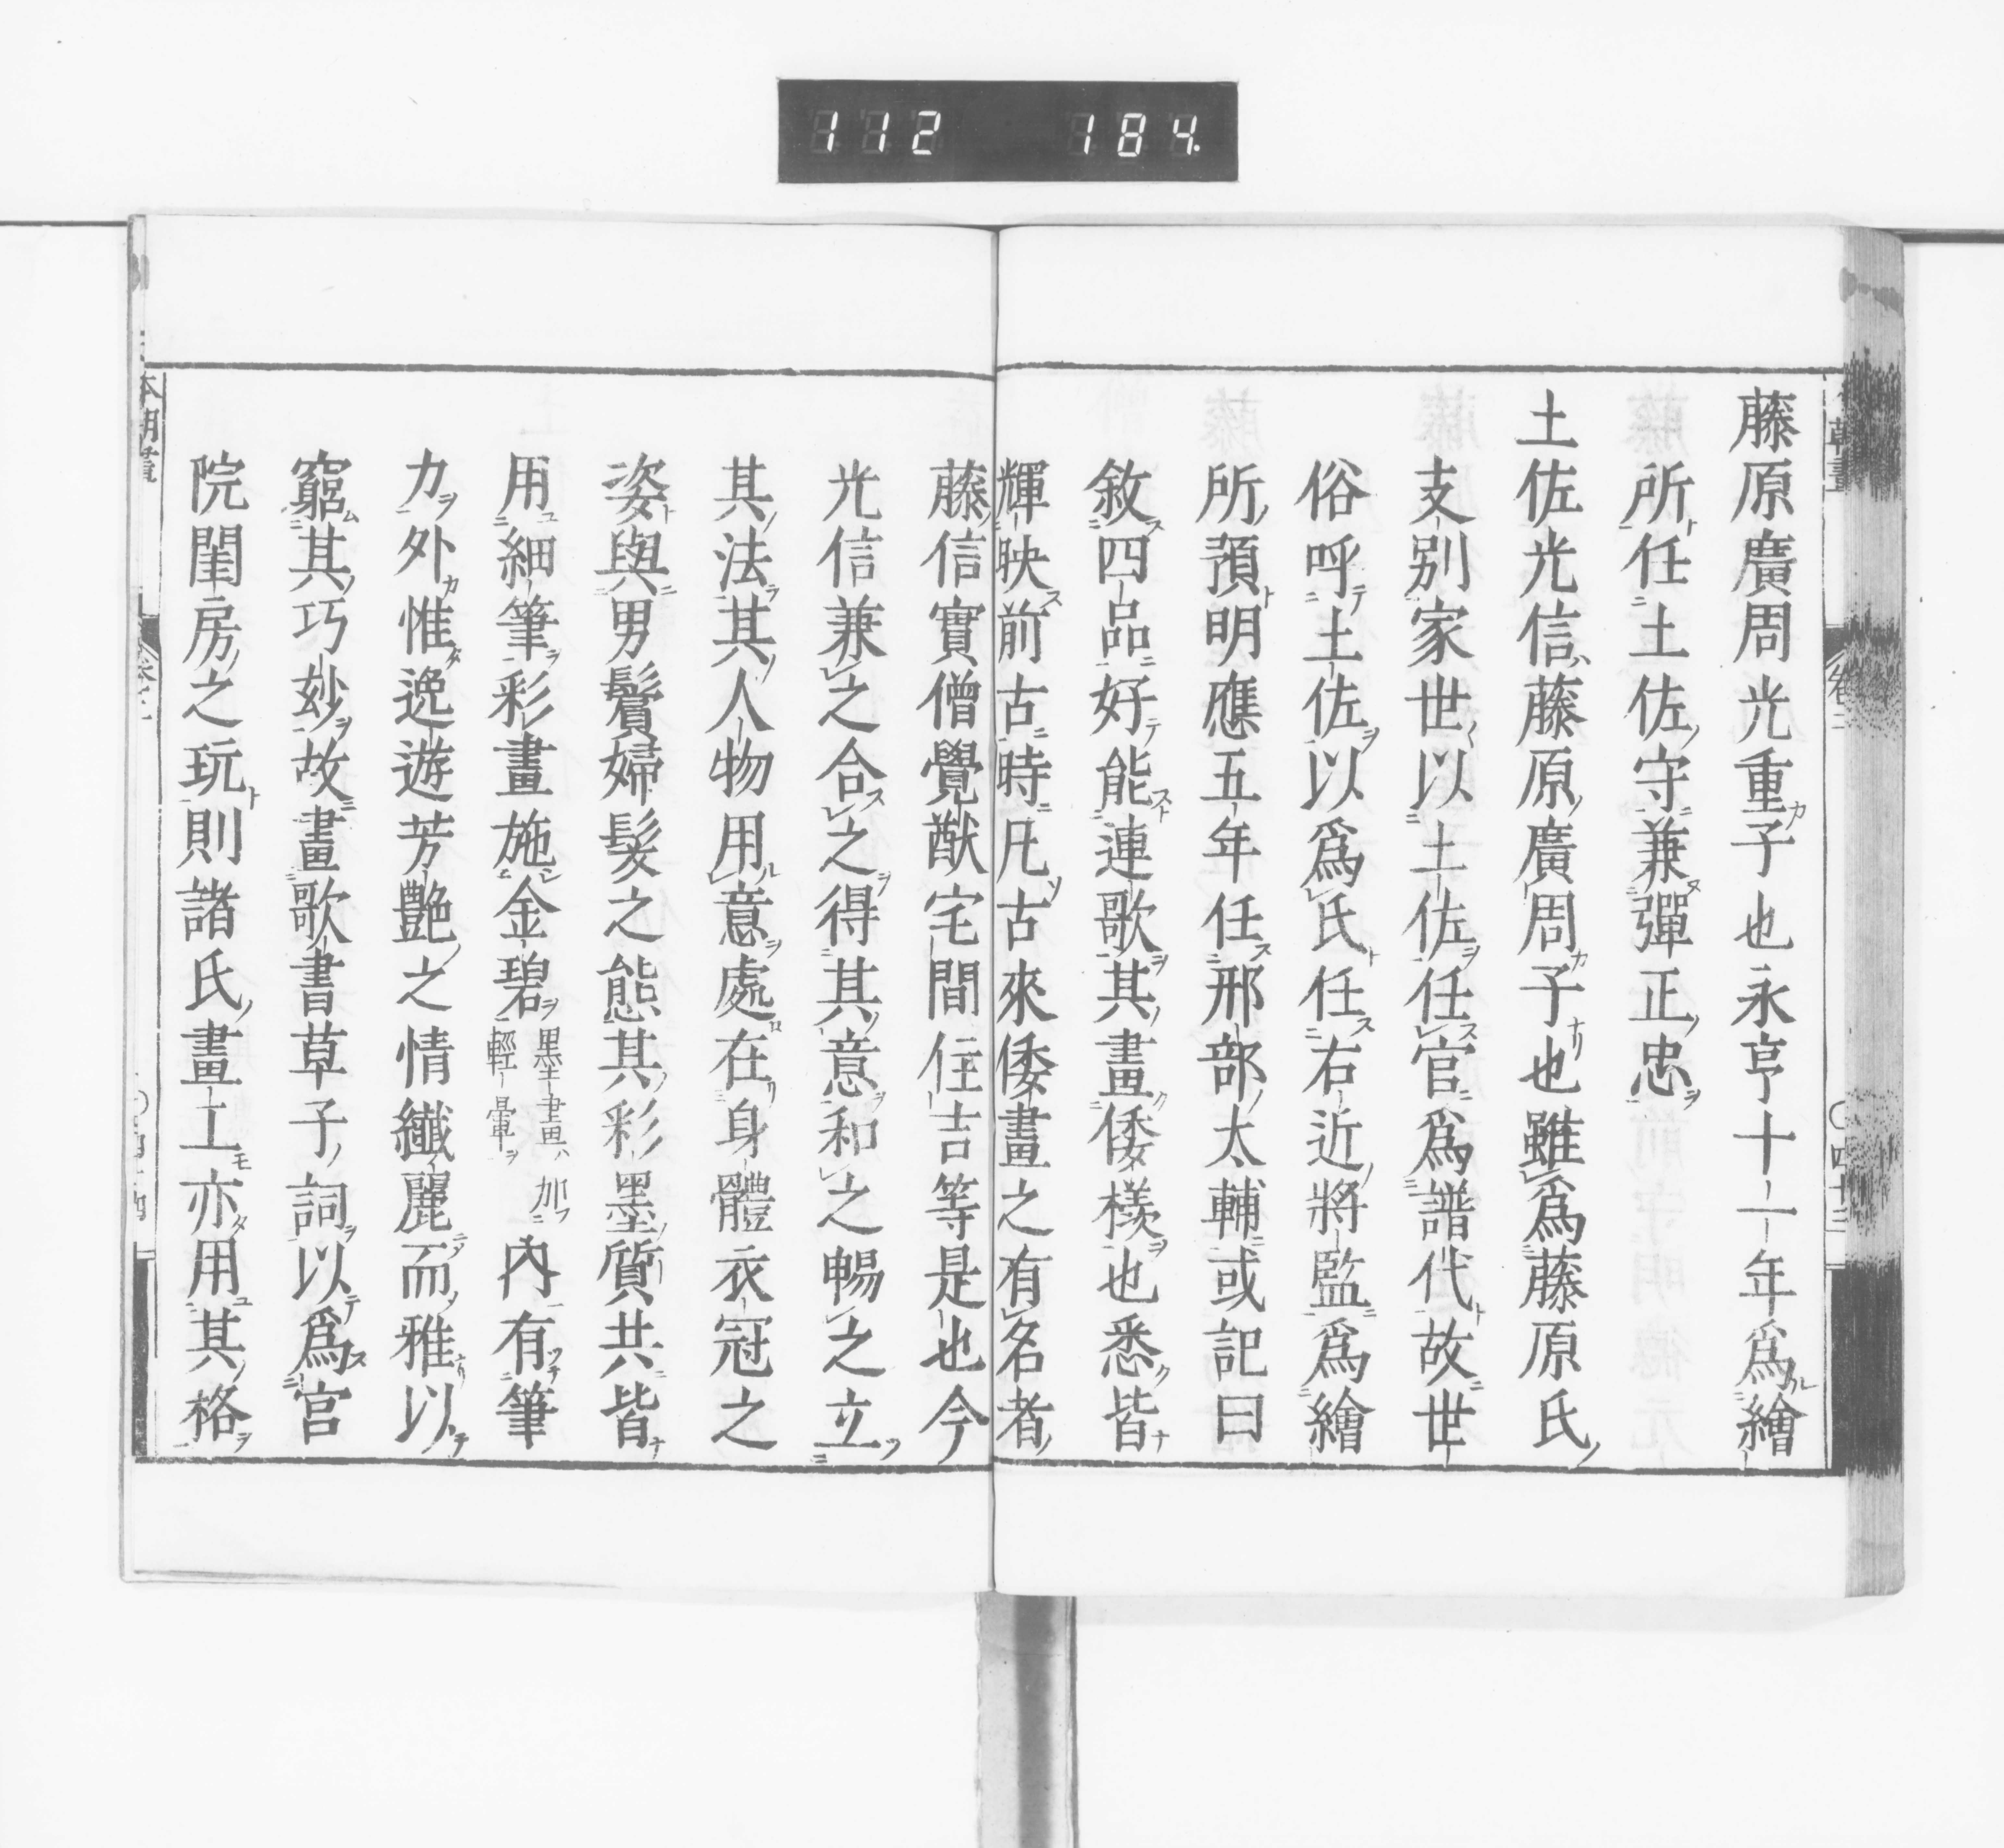 112 184
藤原廣周光重子也永亨十一年為繪
所任土佐守兼彈正忠
土佐光信藤原廣周子也雖為藤原氏
支別家世以土佐任官為譜代故世
俗呼土佐以為氏任右近將監為繪
所預明應五年任邢部太輔或記曰
敘四品好能連歌其畫倭樣也悉皆
輝映前古時凡古來倭畫之有名者
藤信實僧覺猷宅間住吉等是也今
光信兼之合之得其意和之暢之立
其法其人物用意處在身體衣冠之
姿與男鬢婦髮之態其彩墨質共皆
用細筆彩畫施金碧墨畫加輕暈內有筆
力外惟逸遊芳艷之情纖麗而雅以
窮其巧妙故畫歌書草子詞以為宮
院閨房之玩則諸氏畫工亦用其格
本朝畫